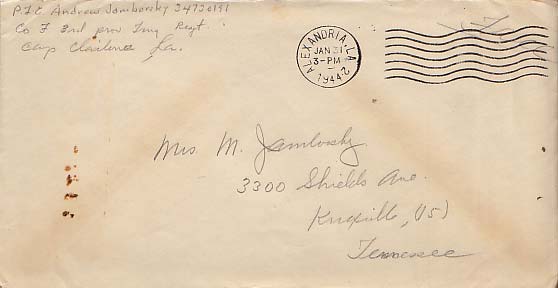 Pfc Andrew Jamborsky 34720191
Co F 3rd prov Trng Regt
Camp Claiborne La.
ALEXANDRIA, LA.
JAN 31
3-PM
1944
2
Mrs M. Jamborsky
3300 Shields Ave.
Knoxville, (15)
Tennessee